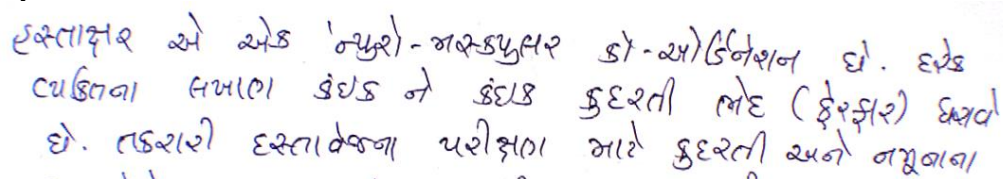 હસ્તાક્ષર એ એક ન્યુરો-મસ્ક્યુલર કો-ઓર્ડિનેશન છે. દરેક
વ્યક્તિના લખાણ કંઇક ને કંઇક કુદરતી ભેદ (ફેરફાર) ધરાવે
છે. તકરારી દસ્તાવેજના પરીક્ષણ માટે કુદરતી અને નમૂનાના